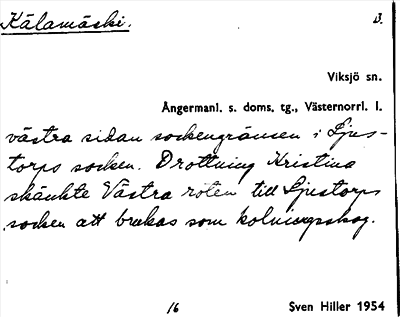 Kälamäski. 3.
Viksjö sn.
Ångermanl. s. doms. tg., Västernorrl. l.
västra sidan sockengränsen i Ljus-
torps socken. Drottning Kristina
skänkte Västra roten till Ljustorps
socken att brukas som kolningsskog.
16 Sven Hiller 1954